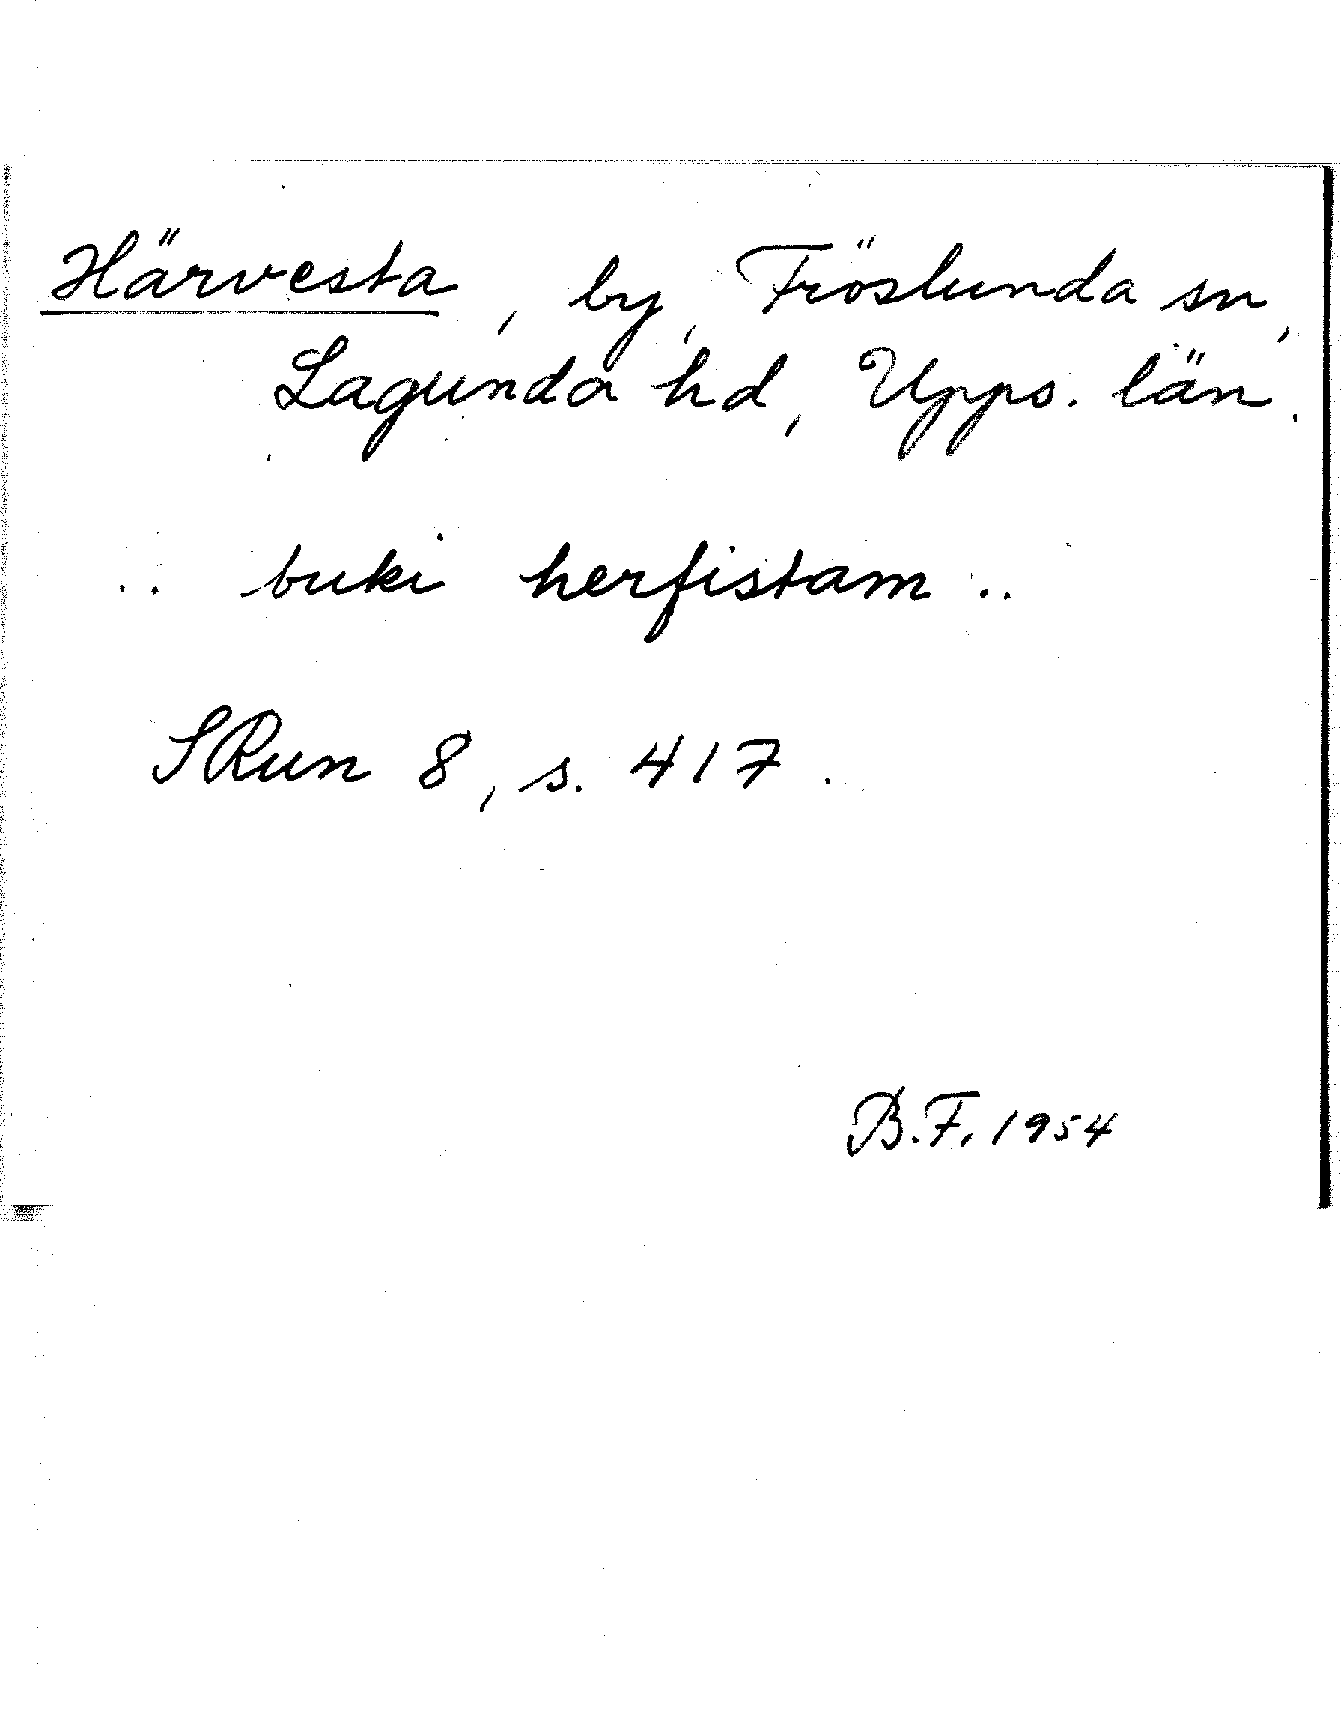 Härvesta, by, Fröslunda sn,
Lagunda hd, Upps. län.
.. buki herfistam ..
SRun 8, s. 417.
B.F. 1954